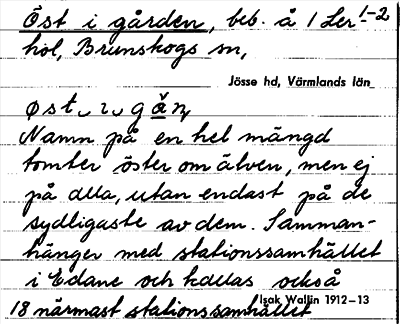 Öst i gården, beb. å 1 Ler 1-2
hol, Brunskogs sn,
Jösse hd, Värmlands län
øst ɩ gän
Namn på en hel mängd
tomter öster om älven, men ej
på alla, utan endast på de
sydligaste av dem. Samman-
hänger med stationssamhället
i Edane och kallas också
Isak Wallin 1912-13
18 närmast stationssamhället